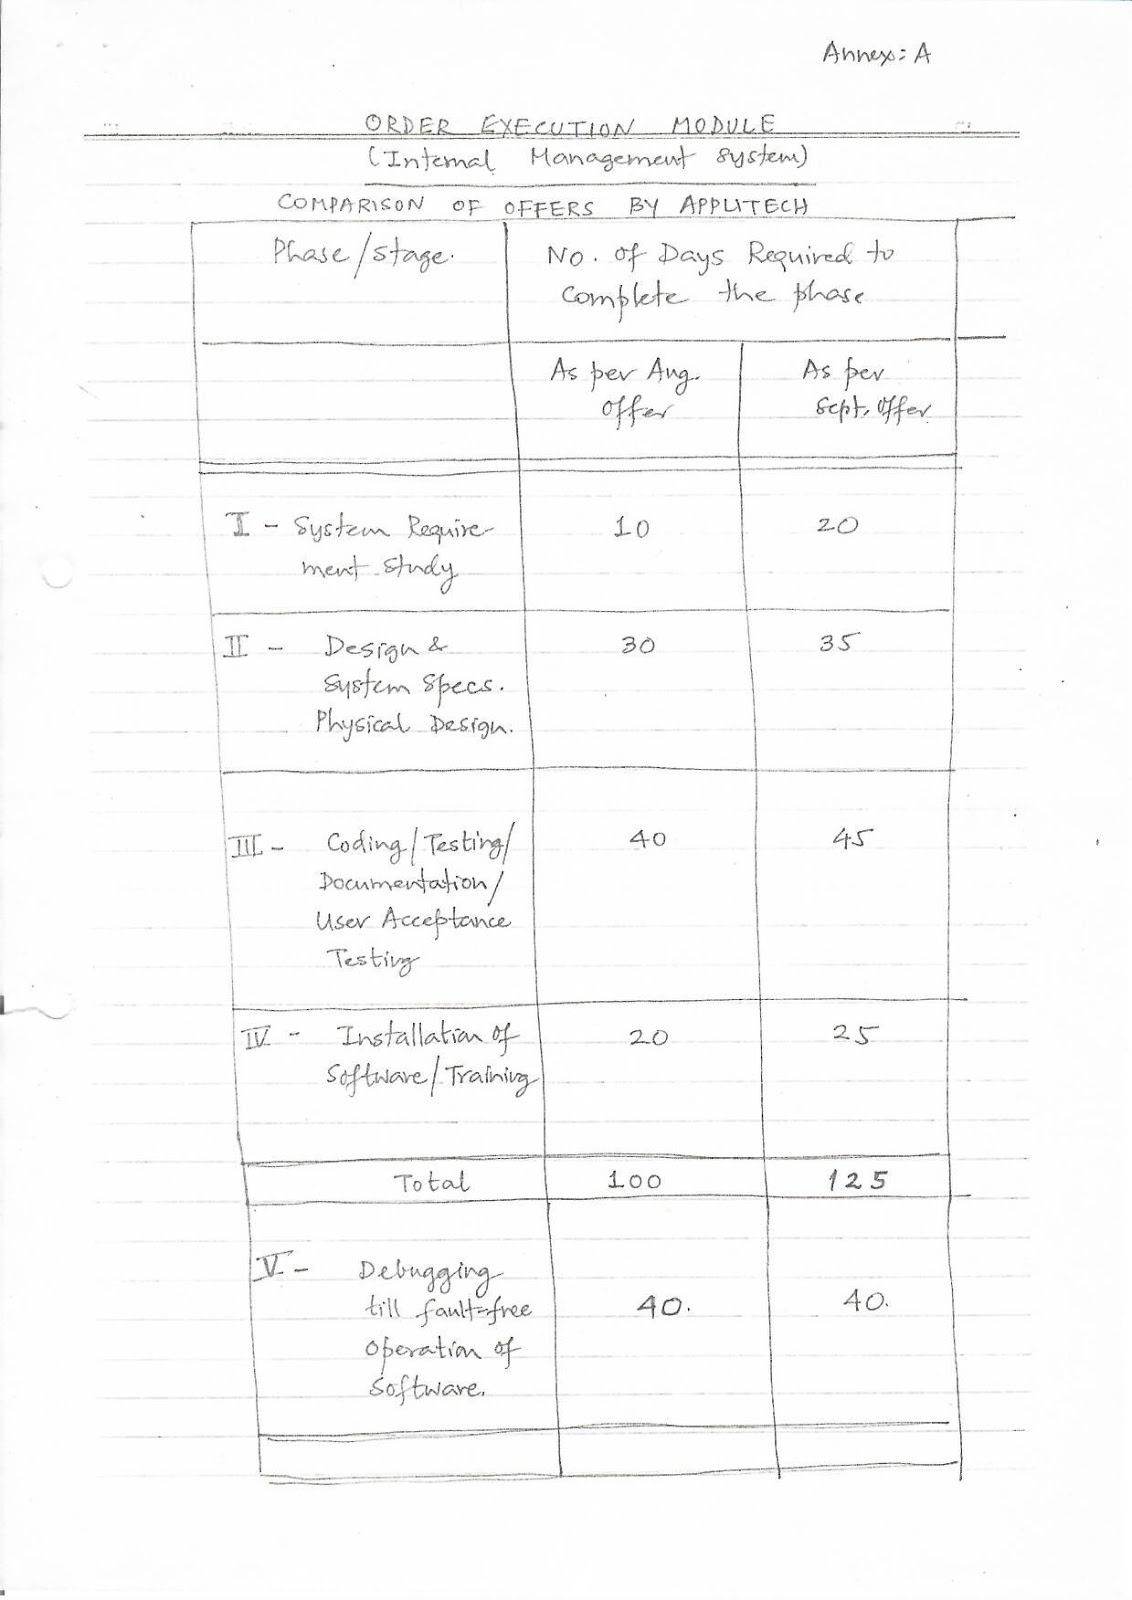 Annex: A
ORDER EXECUTION MODULE
(Internal Management System)
COMPARISON OF OFFERS BY APPLITECH
Phase/stage. No. of Days Required to
complete the phase
As per Aug. As per
offer Sept. offer
I - System Require- 10 20
ment study
II - Design & 30 35
System Specs.
Physical Design.
III - Coding/Testing/ 40 45
Documentation/
User Acceptance
Testing
IV - Installation of 20 25
Software/Training
Total 100 125
V - Debugging
till fault-free 40. 40.
operation of
Software.